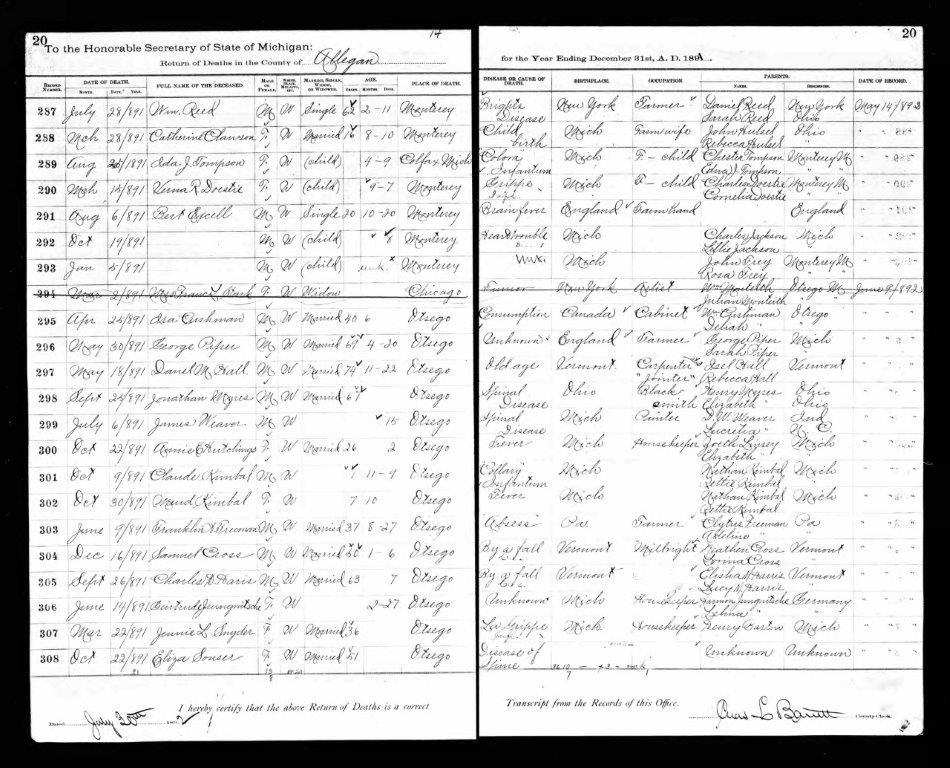 20
14
To the Honorable Secretary of State of Michigan:
Return of Deaths in the County of Allegan
RECORD NUMBER. DATE OF DEATH. MONTH. DATE. YEAR. FULL NAME OF THE DECEASED. MALE OR FEMALE. MARRIED, SINGLE, WIDOW, OR WIDOWER. AGE. YEARS. MONTHS. DAYS. PLACE OF DEATH.
287 July 28/891 Wm. Reed M W Single 62 2-11 Monterey
288 Mch 28/891 Catherine Clawson F W Married 8-10 Monterey
289 Aug /891 Ada J. Tompson F W (child) 4-9 Colfax Mich
290 Mch 15/891 Verna R Doestie F W (child) 9-7 Monterey
291 Aug 6/891 Bert Excell M W Single 20 10-20 Monterey
292 Oct 19/891 M W (child) 8 Monterey
293 Jan 5/891 M W (child) unk. Monterey
294 Mar 2/891 Mrs Franc L. Park F W Widow Chicago
295 Apr 25/891 Asa Cushman M W Married 40 6 Otsego
296 May 30/891 George Piper M W Married 69 4-20 Otsego
297 May 18/891 Danel M Hall M W Married 74 11-22 Otsego
298 Sept 24/891 Jonathan Myres M W Married 67 Otsego
299 July 6/891 James Weaver M W 15 Otsego
300 Oct 22/891 Annie E Hutchings F W Married 26 2 Otsego
301 Oct 9/891 Claude Kimbal M W 11-9 Otsego
302 Oct 30/891 Maud Kimbal F W 7 10 Otsego
303 June 9/891 Franklin Freeman M W Married 37 8-27 Otsego
304 Dec 16/891 Samuel Cross M W Married 1-6 Otsego
305 Sept 26/891 Charles D Haris M W Married 63 7 Otsego
306 June 14/891 Gertrude Jungnitsche F W 2-27 Otsego
307 Mar 22/891 Jennie L Snyder F W Married 36 Otsego
308 Oct 22/891 Eliza Sonser F W Married 51 Otsego
I hereby certify that the above Return of Deaths is a correct
Dated July 20th 2
20
for the Year Ending December 31st, A. D. 1891.
DISEASE OR CAUSE OF DEATH. BIRTHPLACE. OCCUPATION. PARENTS. NAMES. RESIDENCE. DATE OF RECORD.
Brights New York Farmer Daniel Reed New York May 14/892
Disease Sarah Reed Ohio
Child Mich Farm wife John Hulsel Ohio
birth Rebecca Hulsel
Colora Mich F - child Chester Tompson Monterey M
Infantum Edna J. Tompson
Grippe Mich F - child Charles Doestie Monterey M
Cornelia Doestie
Brain fever England Farm hand England
Heart trouble Mich Charles Jackson Mich
Lillie Jackson
Unk. Mich John Frey Monterey M
Rosa Frey
Tumor New York Artist Wm Monteith Otsego M June 9/892
Julian Monteith
Consumption Canada Cabinet Wm Cushman Otsego
Deliah "
Unknown England Farmer George Piper Mich
Sarah Piper
Old age Vermont Carpenter Asel Hall Vermont
Jointer Rebecca Hall
Spinal Ohio Black Henry Myres Ohio
Disease smith Elizabeth " Ohio
Spinal Mich D. W. Weaver Ind
Disease Lucretia "
Fever Mich Housekeeper Linsey Mich
Elizabeth "
Collary Mich Nathan Kimbal Mich
Infantum Lettie Kimbal
Fever Mich Nathan Kimbal Mich
Lettie Kimbal
Absess Pa Farmer Clytus Freeman Pa
By a fall Vermont Millright Heathen Cross Vermont
Cross
By a fall Vermont Elisha W Harris Vermont
Lucy W. Harris
Unknown Mich Housekeeper Jungnitsche Germany
La Grippe Mich Housekeeper Henry Barton Mich
Disease of Unknown Unknown
Spine
Transcript from the Records of this Office.
Chas L Barrett County Clerk.